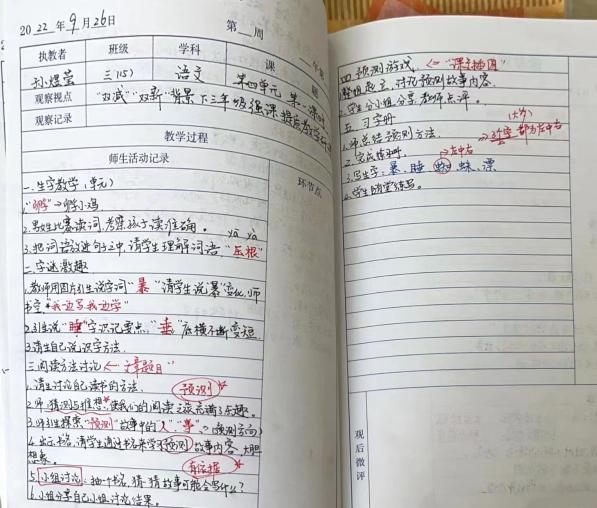 2022年9月26日 第 周
执教者 班级 学科 课 题
孙煜萱 三(15) 语文 第四单元 第一课时
观察视点 "双减""双新"背景下三年级强课提质教学
观察记录
教学过程
师生活动记录 环节点
一.生字教学(单元)
1."孵"→孵小鸡
2.男女比赛读词,考察孩子读准确。
yā yà
3.把词语放进句子中,请学生理解词语"压根"
二.字谜激趣
1.教师用图片引生说字词"暴"请学生说暴变化,师
书空,*"我边写我边学"
2.引生说"睡"字识记要点,"垂"底横不断变短.
3.请生自己说识字方法.
三.阅读方法讨论←"文章题目"
1.请生讨论自己读书的方法. 预测*
2.师:猜测与推想*,使我们的阅读之旅充满了乐趣。
3.师引生探索"预测"故事中的"人""事"。(预测方向)
4.出示书名,请学生通过书名来学习预测故事内容.大胆
想象。 有依据*
5.小组讨论:抽一个书名,猜猜故事可能会写什么?
6.小组分享自己小组讨论结果。
四.预测游戏. ←"课文插图"
1.整组起立,讨论预测故事内容.
2.学生分小组分享,教师点评。
五.习字册
1.师总结预测方法. →3个字 都为左中右
2.完成练习册. →左中右
3.写生字:暴、睡、蛛、漂
4.学生随堂练写。
观后微评